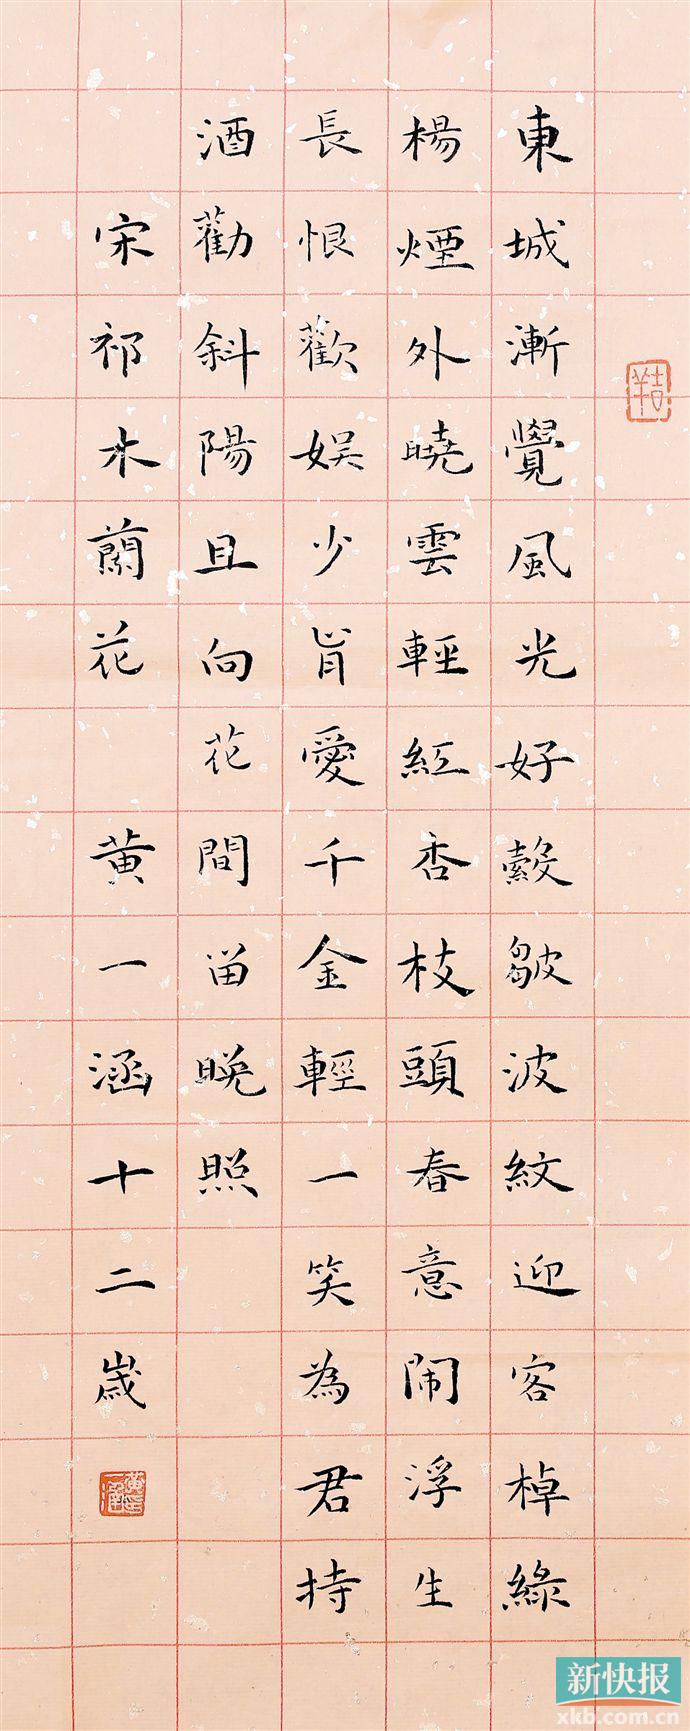 東城漸覺風光好縠皺波紋迎客棹綠
楊煙外曉雲輕紅杏枝頭春意閙浮生
長恨歡娛少肎愛千金輕一笑為君持
酒勸斜陽且向花間畱晚照
宋祁木蘭花 黃一涵十二歲
吉羊
黃一涵印
新快报
xkb.com.cn